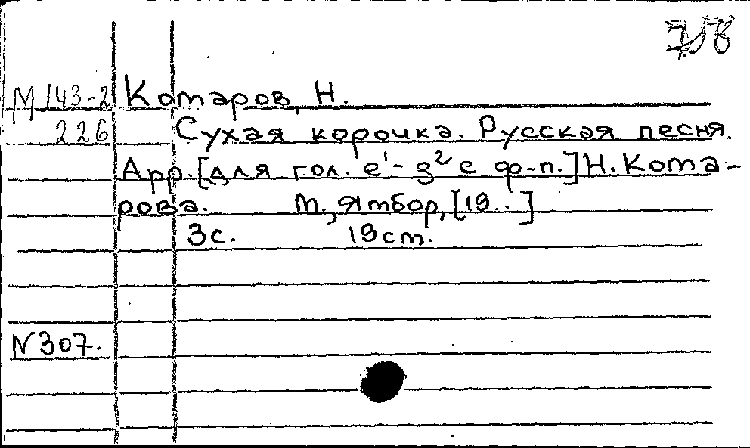 М 143-2 Котаров, Н.
226 Сухая корочка. Русская песня.
Арр. [для гол. e¹- g² с ф-п.] Н. Кота-
рова. М., Ямбор, [19..]
3с. 19 ст.
N 307.